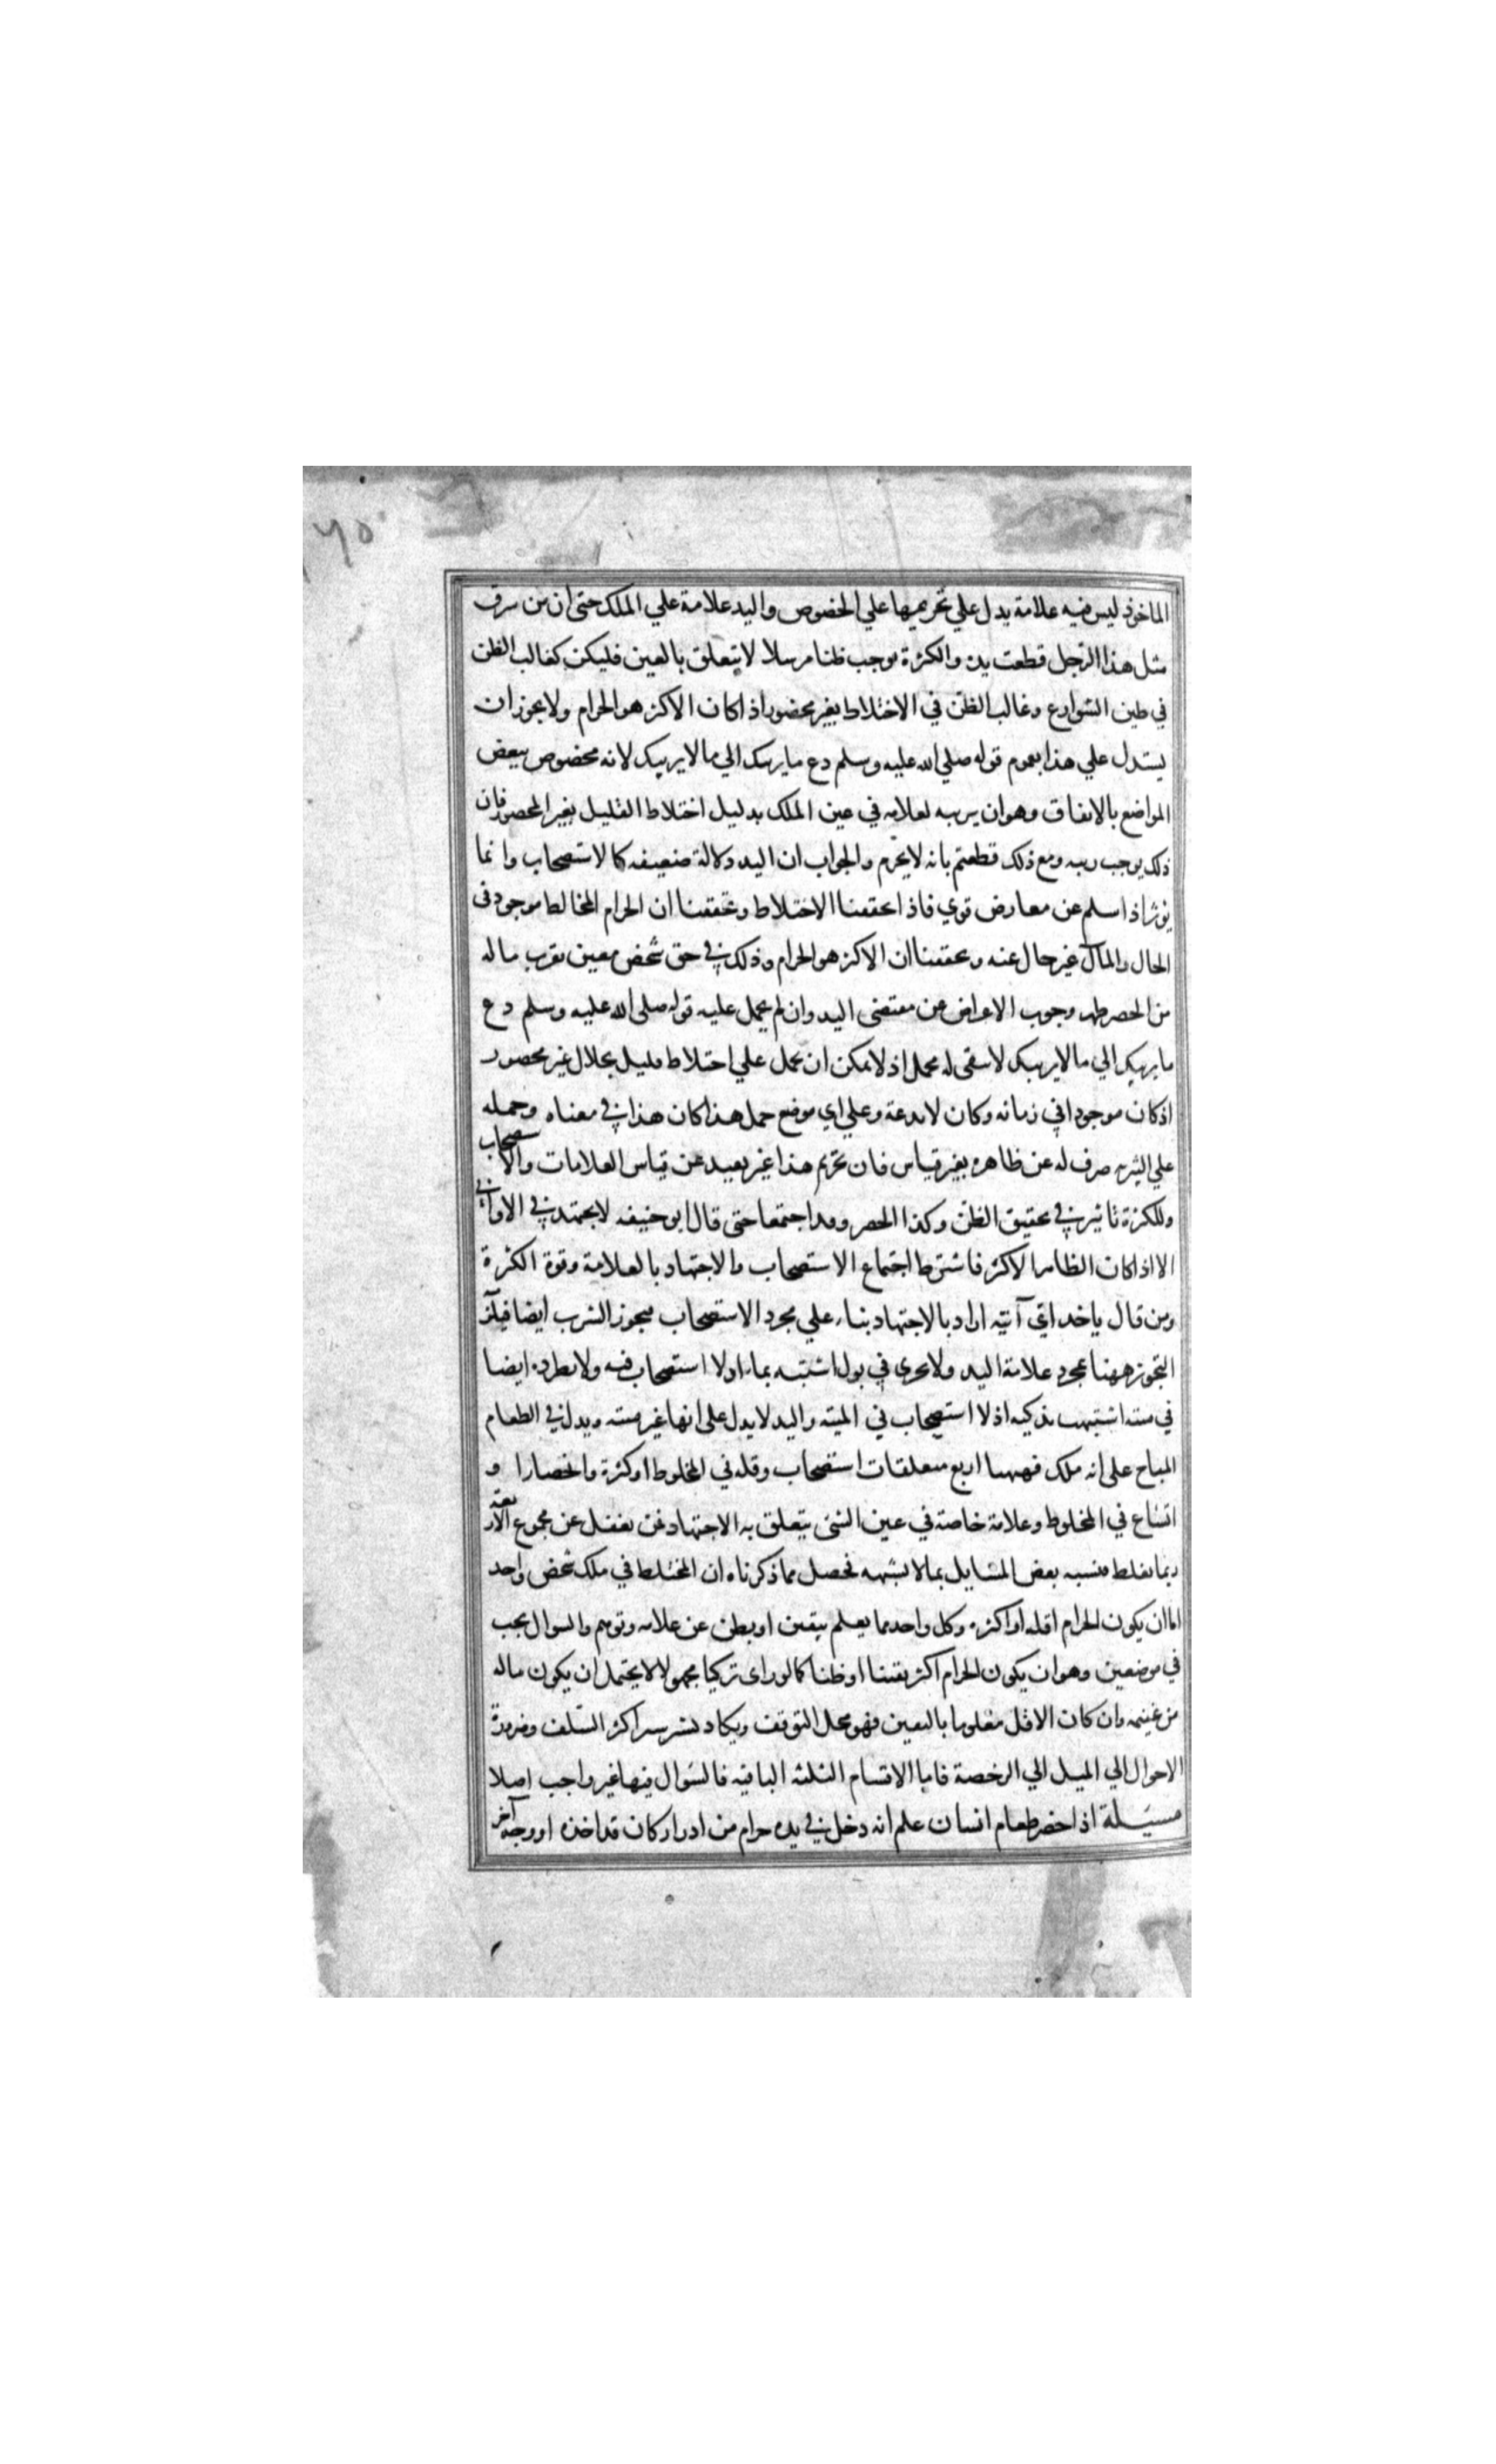 ٦٥
الماخوذ ليس فيه علامة يدل علي تحريمها علي الخصوص واليد علامة علي الملك حتي ان من سرق
مثل هذا الرجل قطعت يده والكثرة يوجب ظنا مرسلا لا يتعلق بالعين فليكن كغالب الظن
في طين الشوارع وغالب الظن في الاختلاط بغير محصور اذا كان الاكثر هو الحرام ولا يجوز ان
يستدل علي هذا بعموم قوله صلي الله عليه وسلم دع ما يريبك الي ما لا يريبك لانه مخصوص ببعض
المواضع بالاتفاق وهو ان يريبه لعلامه في عين الملك بدليل اختلاط القليل بغير المحصور فان
ذلك يوجب ريبه ومع ذلك قطعتم بانه لا يحرم والجواب ان اليد دلالة ضعيفه كالاستصحاب وانما
يؤثر اذا سلم عن معارض قوي فاذا تحققنا الاختلاط وتحققنا ان الحرام المخالط موجود في
الحال والمال غير خال عنه وتحققنا ان الاكثر هو الحرام وذلك في حق شخص معين يقرب ماله
من الحصر ظهر وجوب الاعراض عن مقتضى اليد وان لم يحمل عليه قوله صلى الله عليه وسلم دع
ما يريبك الي ما لا يريبك لا يبقى له محمل اذ لا يمكن ان يحمل علي اختلاط قليل بحلال غير محصور
اذ كان موجودا في زمانه وكان لا يدعه وعلي اي موضع حمل هذا كان هذا في معناه وحمله
علي التنزيه صرف له عن ظاهره بغير قياس فان تحريم هذا غير بعيد عن قياس العلامات والاستصحاب
وللكثرة تاثير في تحقيق الظن وكذا الحصر وقد اجتمعا حتى قال ابو حنيفه لا يجتهد في الاواني
الا اذا كان الطاهر الاكثر فاشترط اجتماع الاستصحاب والاجتهاد بالعلامة وقوة الكثرة
ومن قال ياخذ اي آنيه اراد بالاجتهاد بناء علي مجرد الاستصحاب فيجوز الشرب ايضا فيلزم
التجويز ههنا بمجرد علامة اليد ولا يجري في بول اشتبه بماء اذ لا استصحاب فيه ولا نطرده ايضا
في ميته اشتبهت بذكيه اذ لا استصحاب في الميته واليد لا يدل على انها غير ميته ويدل في الطعام
المباح على انه ملك فههنا اربع متعلقات استصحاب وقله في المخلوط او كثرة وانحصار ا و
اتساع في المخلوط وعلامة خاصة في عين الشئ يتعلق به الاجتهاد فمن يغفل عن مجموع الاربعة
ربما يغلط فيشبه بعض المسايل بما لا يشبهه فحصل مما ذكرناه ان المختلط في ملك شخص واحد
اما ان يكون الحرام اقله او اكثره وكل واحد مما يعلم بيقين او بظن عن علامه وتوهم والسوال يجب
في موضعين وهو ان يكون الحرام اكثر يقينا او ظنا كما لو راى تركيا مجهولا لا يحتمل ان يكون ماله
من غنيمه وان كان الاقل معلوما باليقين فهو محل التوقف ويكاد يشير سير اكثر السلف وضرورة
الاحوال الي الميل الي الرخصة فاما الاقسام الثلثه الباقيه فالسوال فيها غير واجب اصلا
مسيلة اذا حضر طعام انسان علم انه دخل في يده حرام من ادرار كان قد اخذه او وجه آخر